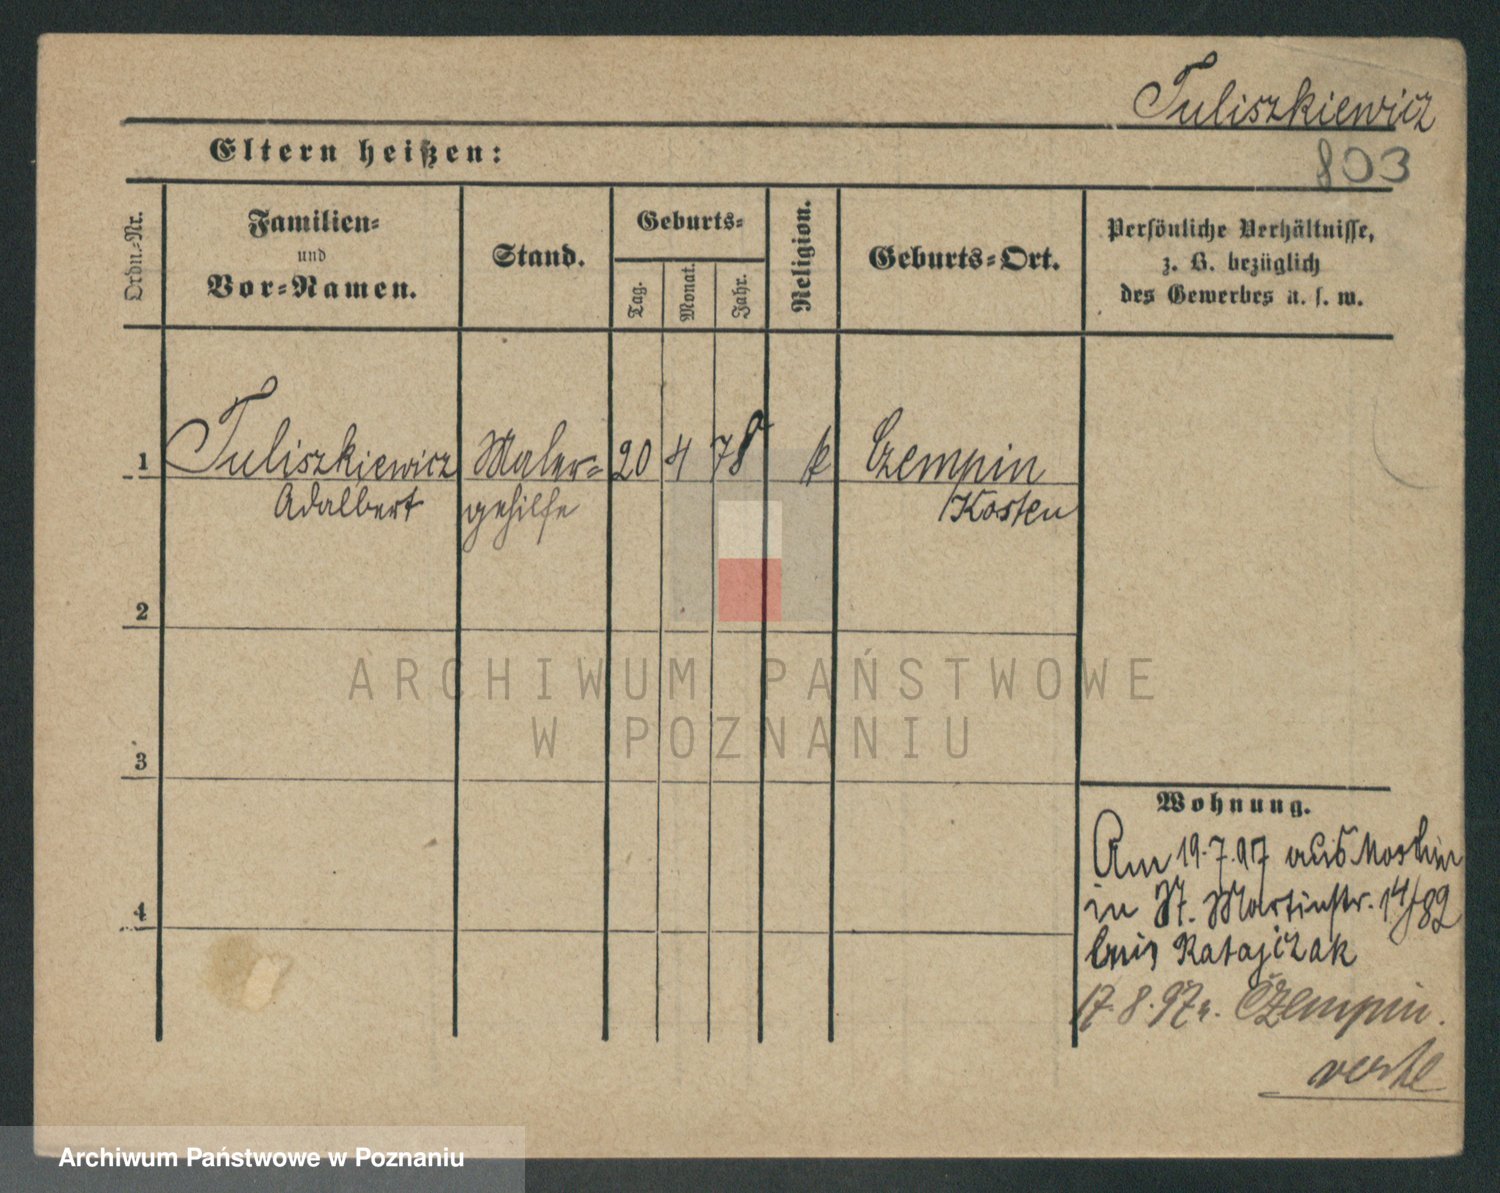 Tuliszkiewicz
Eltern heißen:
803
Ordn.-Nr.
Familien-
und
Vor-Namen.
Stand.
Geburts-
Tag.
Monat.
Jahr.
Religion.
Geburts-Ort.
Persönliche Verhältnisse,
z. B. bezüglich
des Gewerbes u. s. w.
1 Tuliszkiewicz Maler- 20 4 78 k Czempin
Adalbert gehilfe Kosten
2
3
4
Wohnung.
Am 19.7.97 aus Moschin
in St. Martinstr. 14/82
bei Ratajczak
17.8.97 n. Czempin.
verte
ARCHIWUM PAŃSTWOWE
W POZNANIU
Archiwum Państwowe w Poznaniu